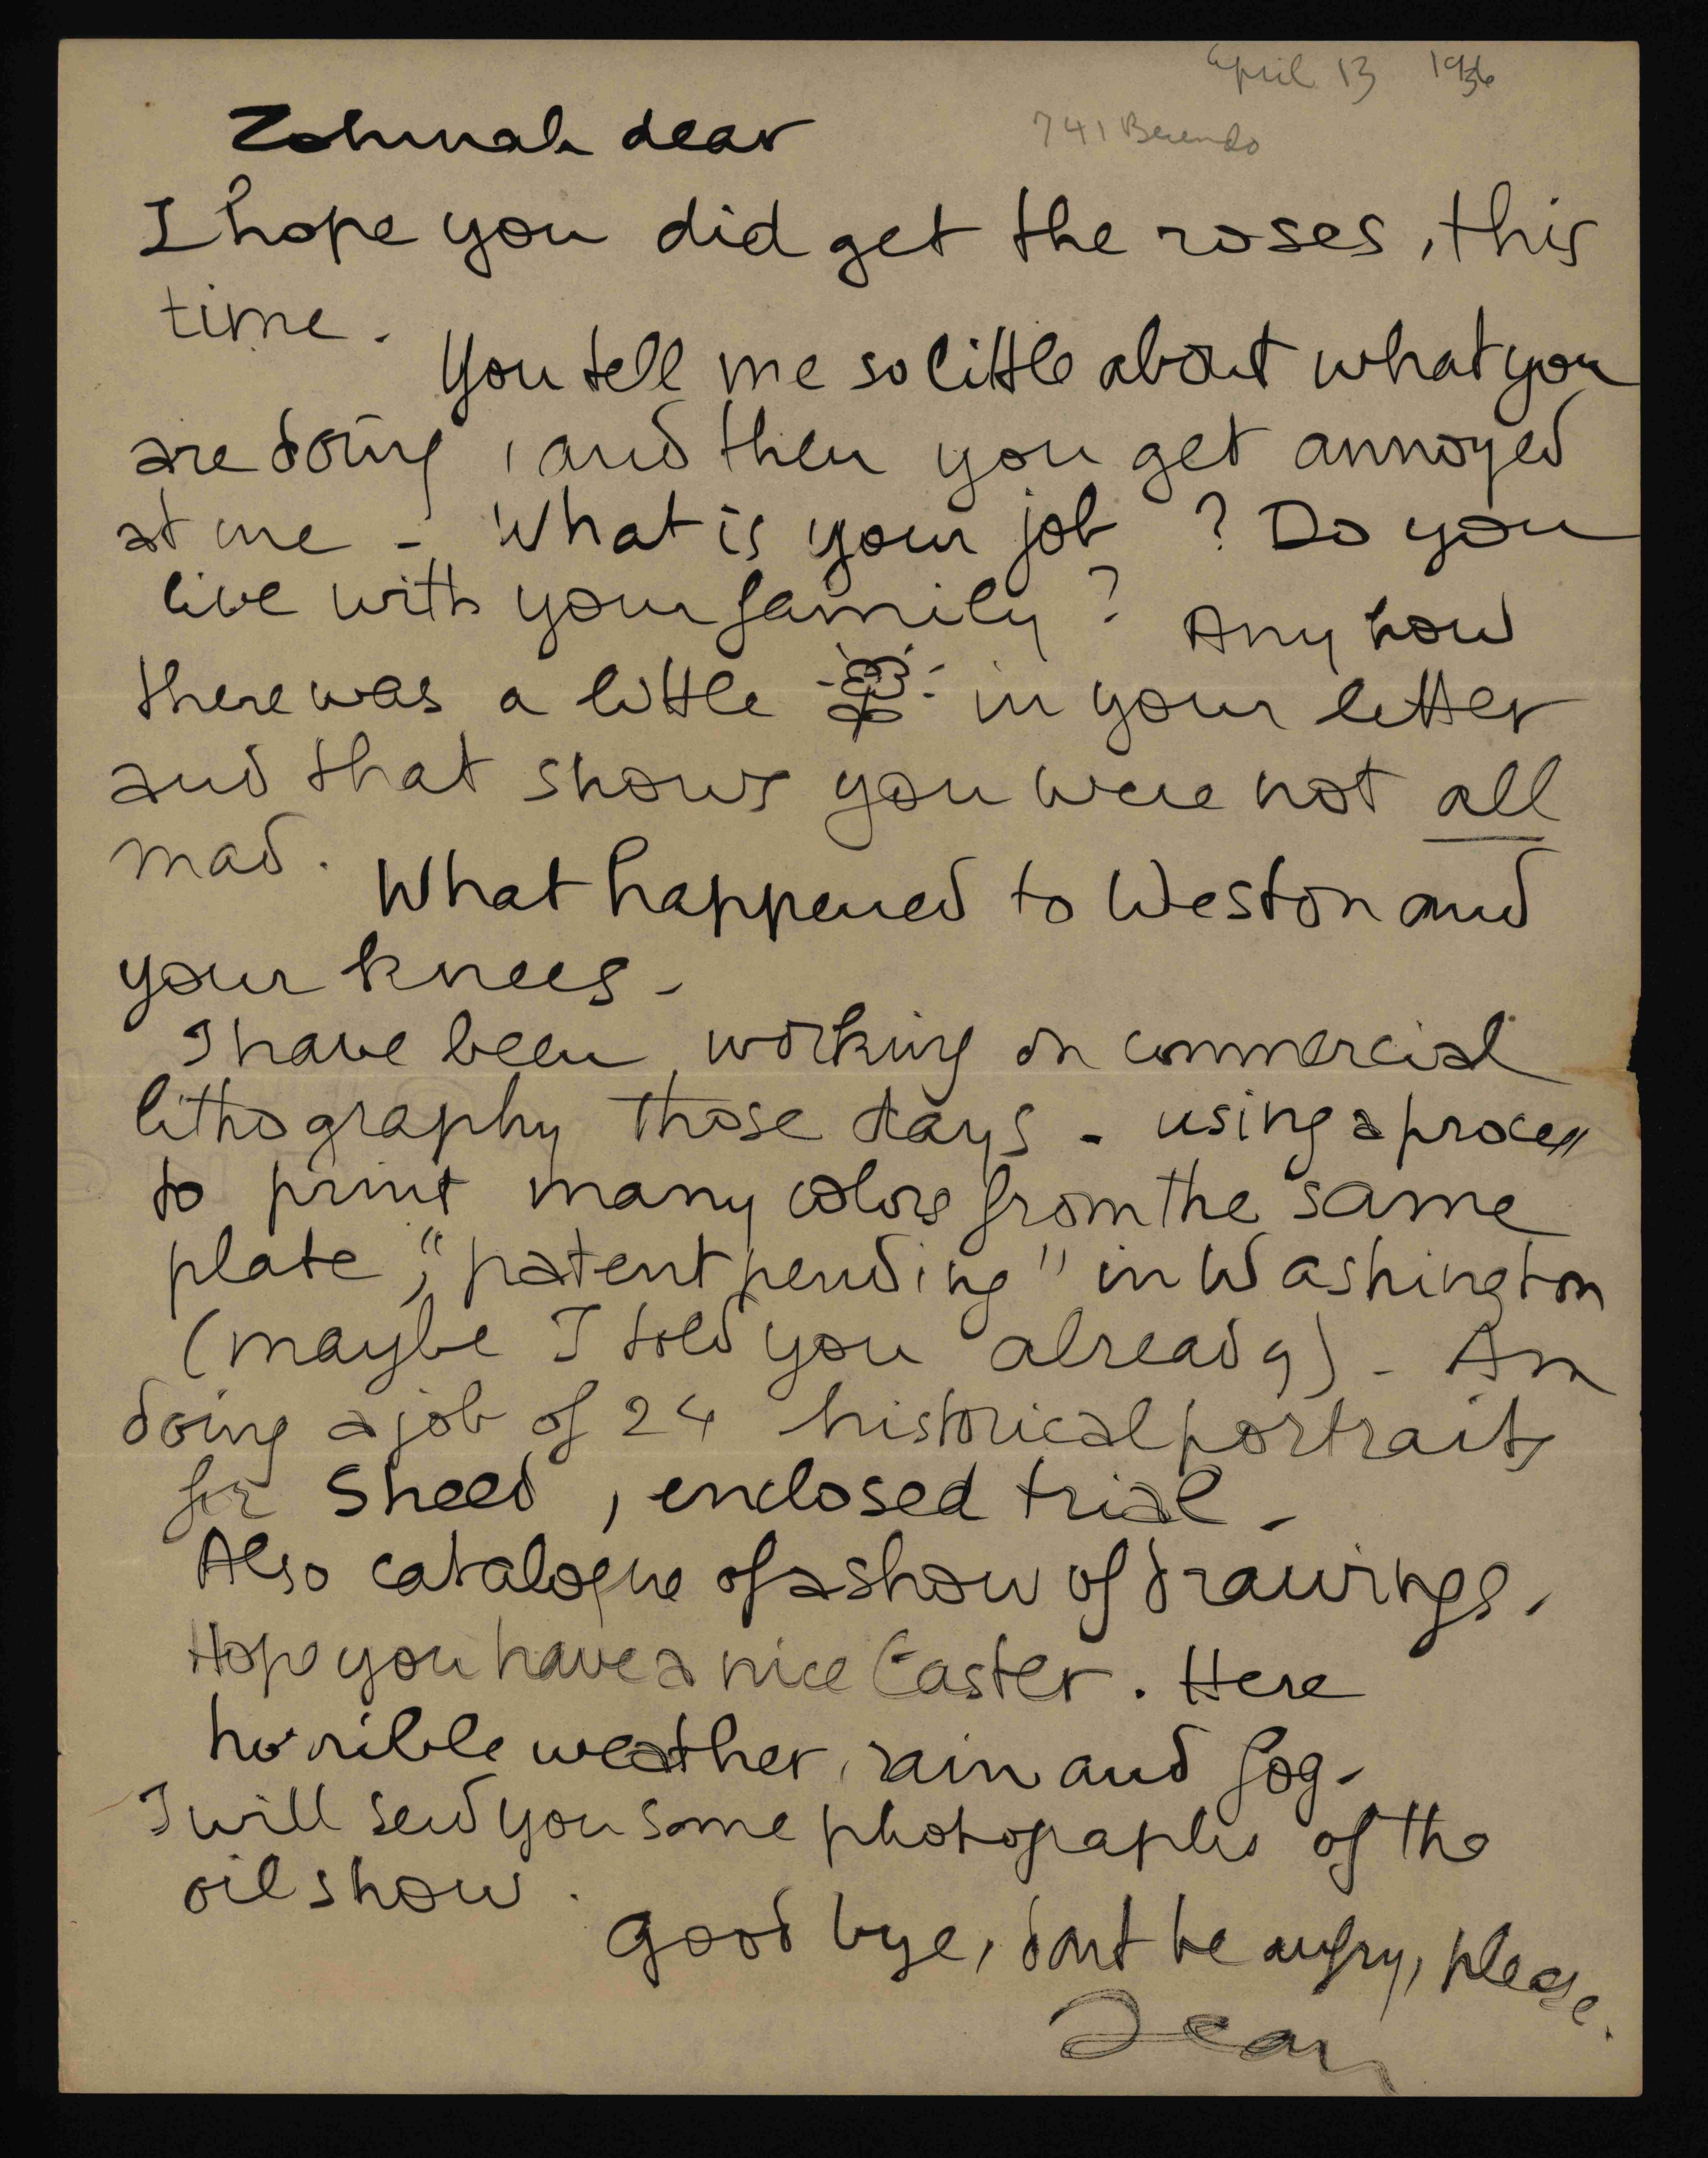 April 13 1936
741 Berendo
Zohmah dear
I hope you did get the roses, this
time.
You tell me so little about what you
are doing, and then you get annoyed
at me - What is your job ? Do you
live with your family ?
Any how
there was a little in your letter
and that shows you were not all
mad.
What happened to Weston and
your knees -
I have been working on commercial
lithography those days - using a process
to print many colors from the same
plate, "patent pending" in Washington
(maybe I told you already) - Am
doing a job of 24 historical portraits
for Sheed, enclosed trial -
Also catalogue of a show of drawings.
Hope you have a nice Easter. Here
horrible weather, rain and fog -
I will send you some photographs of the
oil show.
Good bye, dont be angry, please.
Jean